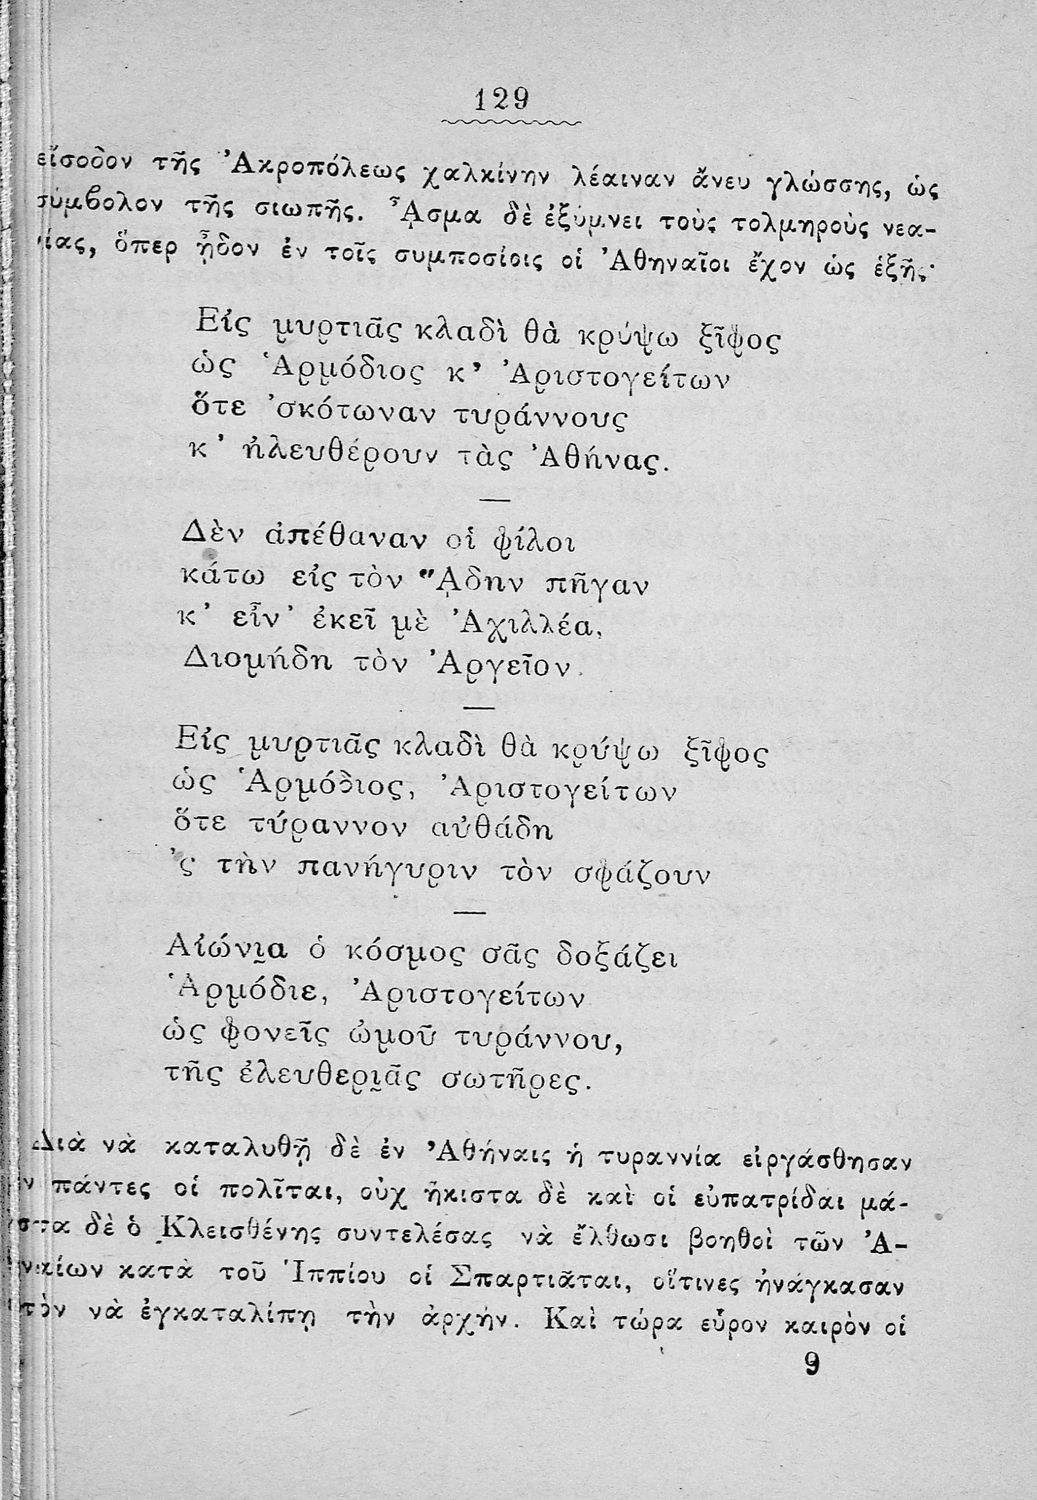 129
εἴσοδον τῆς Ἀκροπόλεως χαλκίνην λέαιναν ἄνευ γλώσσης, ὡς
σύμβολον τῆς σιωπῆς. ᾎσμα δὲ ἐξύμνει τοὺς τολμηροὺς νεα-
νίας, ὅπερ ᾖδον ἐν τοῖς συμποσίοις οἱ Ἀθηναῖοι ἔχον ὡς ἑξῆς·
Εἰς μυρτιᾶς κλαδὶ θὰ κρύψω ξῖφος
ὡς Ἁρμόδιος κ’ Ἀριστογείτων
ὅτε ’σκότωναν τυράννους
κ’ ἠλευθέρουν τὰς Ἀθήνας.
Δὲν ἀπέθαναν οἱ φίλοι
κάτω εἰς τὸν ᾍδην πῆγαν
κ’ εἶν’ ἐκεῖ μὲ Ἀχιλλέα,
Διομήδη τὸν Ἀργεῖον.
Εἰς μυρτιᾶς κλαδὶ θὰ κρύψω ξῖφος
ὡς Ἁρμόδιος, Ἀριστογείτων
ὅτε τύραννον αὐθάδη
’ς τὴν πανήγυριν τὸν σφάζουν
Αἰώνι̯α ὁ κόσμος σᾶς δοξάζει
Ἁρμόδιε, Ἀριστογείτων
ὡς φονεῖς ὠμοῦ τυράννου,
τῆς ἐλευθερι̯ᾶς σωτῆρες.
Διὰ νὰ καταλυθῇ δὲ ἐν Ἀθήναις ἡ τυραννία εἰργάσθησαν
πάντες οἱ πολῖται, οὐχ ἥκιστα δὲ καὶ οἱ εὐπατρίδαι μά-
λιστα δὲ ὁ Κλεισθένης συντελέσας νὰ ἔλθωσι βοηθοὶ τῶν Ἀ-
θηναίων κατὰ τοῦ Ἱππίου οἱ Σπαρτιᾶται, οἵτινες ἠνάγκασαν
αὐτὸν νὰ ἐγκαταλίπῃ τὴν ἀρχήν. Καὶ τώρα εὗρον καιρὸν οἱ
9